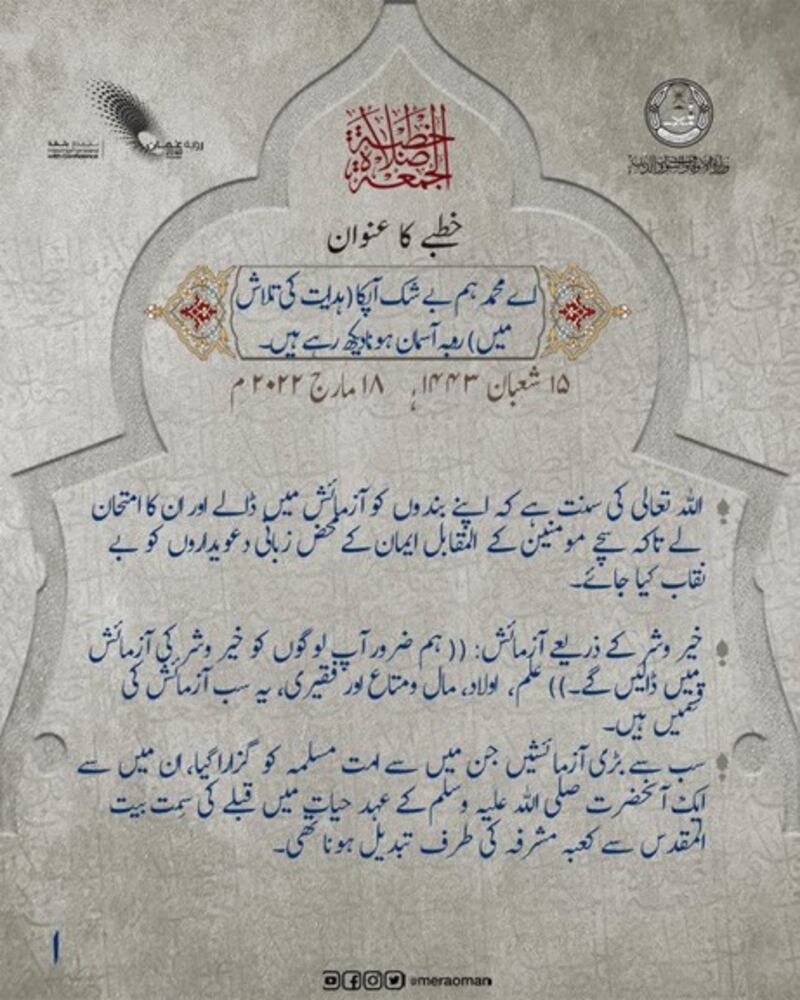 خطبة
صلاة
الجمعة
رؤية عُمان
وزارة الأوقاف والشؤون الدينية
خطبے کا عنوان
اے محمد ہم بے شک آپکا (ہدایت کی تلاش
میں) روبہ آسمان ہونا دیکھ رہے ہیں۔
۱۵ شعبان ۱۴۴۳ھ ۱۸ مارچ ۲۰۲۲ م
اللہ تعالی کی سنت ہے کہ اپنے بندوں کو آزمائش میں ڈالے اور ان کا امتحان
لے تاکہ سچے مومنین کے المقابل ایمان کے محض زبانی دعویداروں کو بے
نقاب کیا جائے۔
خیر وشر کے ذریعے آزمائش: (( ہم ضرور آپ لوگوں کو خیر وشر کی آزمائش
میں ڈالیں گے۔)) علم، اولاد، مال ومتاع اور فقیری، یہ سب آزمائش کی
قسمیں ہیں۔
سب سے بڑی آزمائشیں جن میں سے امت مسلمہ کو گزارا گیا، ان میں سے
ایک آنحضرت صلی اللہ علیہ وسلم کے عہد حیات میں قبلے کی سمت بیت
المقدس سے کعبہ مشرفہ کی طرف تبدیل ہونا تھی۔
۱
@meraoman